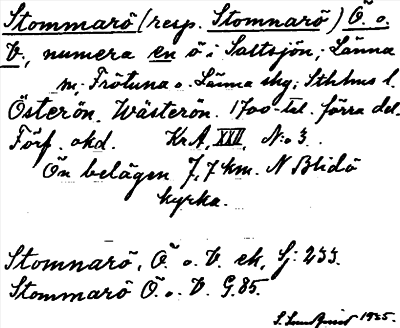 Stommarö (resp. Stomnarö) Ö. o.
V., numera en ö i Saltsjön, Länna
m, Frötuna o. Länna skg; Sthlms l.
Österön, Wästerön. 1700-tal. förra del.
Förf. okd. KrA, XXII, N:o 3.
Ön belägen 7,7 km. N Blidö
kyrka.
Stomnarö, Ö. o. V. ek, Sj: 233.
Stommarö Ö. o. V. G.85.
S. Lundquist 1935.